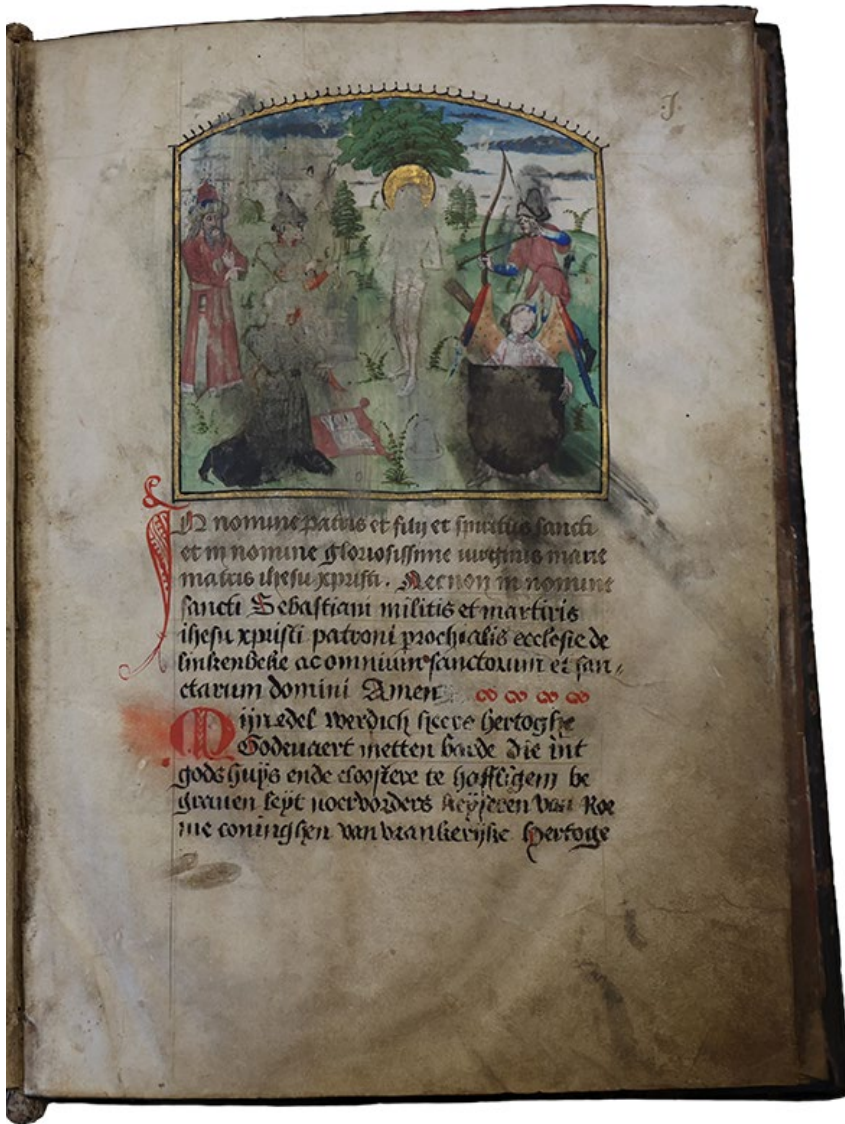 J.
In nomine patris et filij et spiritus sancti
et in nomine gloriosissime virginis marie
matris ihesu xpristi. Necnon in nomine
sancti Sebastiani militis et martiris
ihesu xpristi patroni prochialis ecclesie de
linkenbeke ac omnium sanctorum et san-
ctarum domini Amen
Mijn edel werdich heere hertoghe
Godeuaert metten barde die int
gods huys ende cloostere te haffligem be
grauen leyt voervorders keyseren van Roe
me coninghen van vrankerijke hertoge